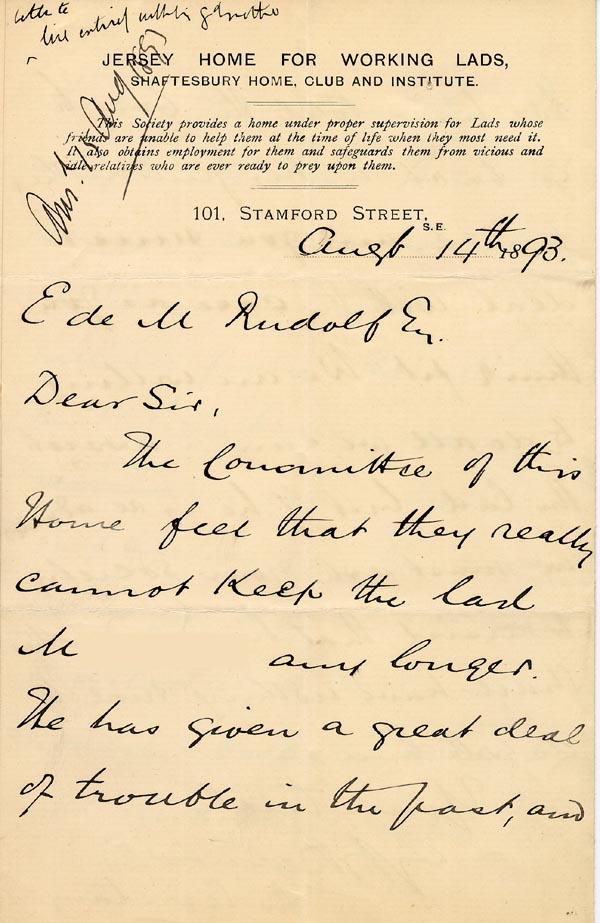 letter to
live entirely with his gdmother
Ans. 15 Aug 1893
JERSEY HOME FOR WORKING LADS,
SHAFTESBURY HOME, CLUB AND INSTITUTE.
This Society provides a home under proper supervision for Lads whose
friends are unable to help them at the time of life when they most need it.
It also obtains employment for them and safeguards them from vicious and
idle relatives who are ever ready to prey upon them.
101, STAMFORD STREET,
S.E.
Augt 14th 1893.
E de M Rudolf Esq.
Dear Sir,
The Committee of this
Home feel that they really
cannot keep the lad
M any longer.
He has given a great deal
of trouble in the past, and